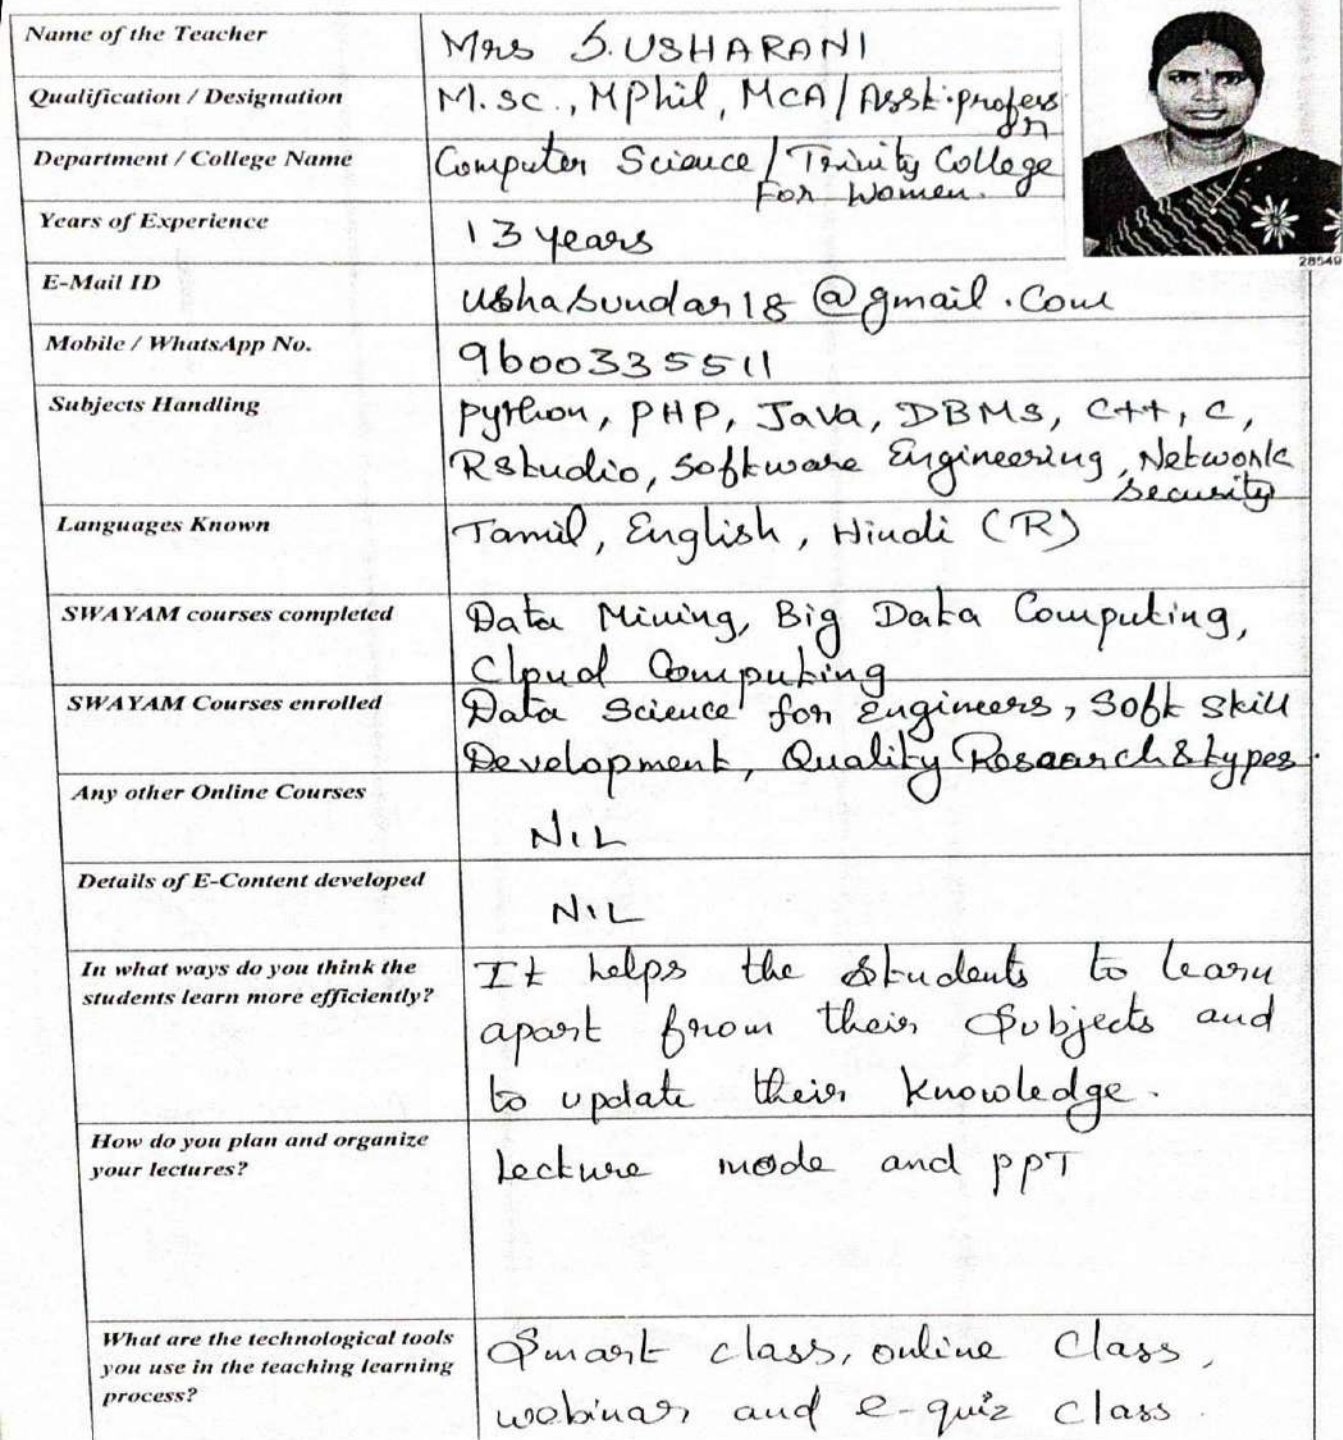 Name of the Teacher
Mrs S. USHARANI
Qualification / Designation
M.sc., MPhil, MCA / Asst.profess
or
Department / College Name
Computer Science / Trinity College
For Women.
Years of Experience
13 years
28549
E-Mail ID
ushasundar18@gmail.com
Mobile / WhatsApp No.
9600335511
Subjects Handling
python, PHP, Java, DBMS, C++, C,
Rstudio, software Engineering, Network
security
Languages Known
Tamil, English, Hindi (R)
SWAYAM courses completed
Data Mining, Big Data Computing,
Cloud Computing
SWAYAM Courses enrolled
Data Science for Engineers, Soft skill
Development, Quality Research & types.
Any other Online Courses
NIL
Details of E-Content developed
NIL
In what ways do you think the
students learn more efficiently?
It helps the students to learn
apart from their Subjects and
to update their knowledge.
How do you plan and organize
your lectures?
Lecture mode and ppT
What are the technological tools
you use in the teaching learning
process?
Smart class, online Class,
webinar and e-quiz class.